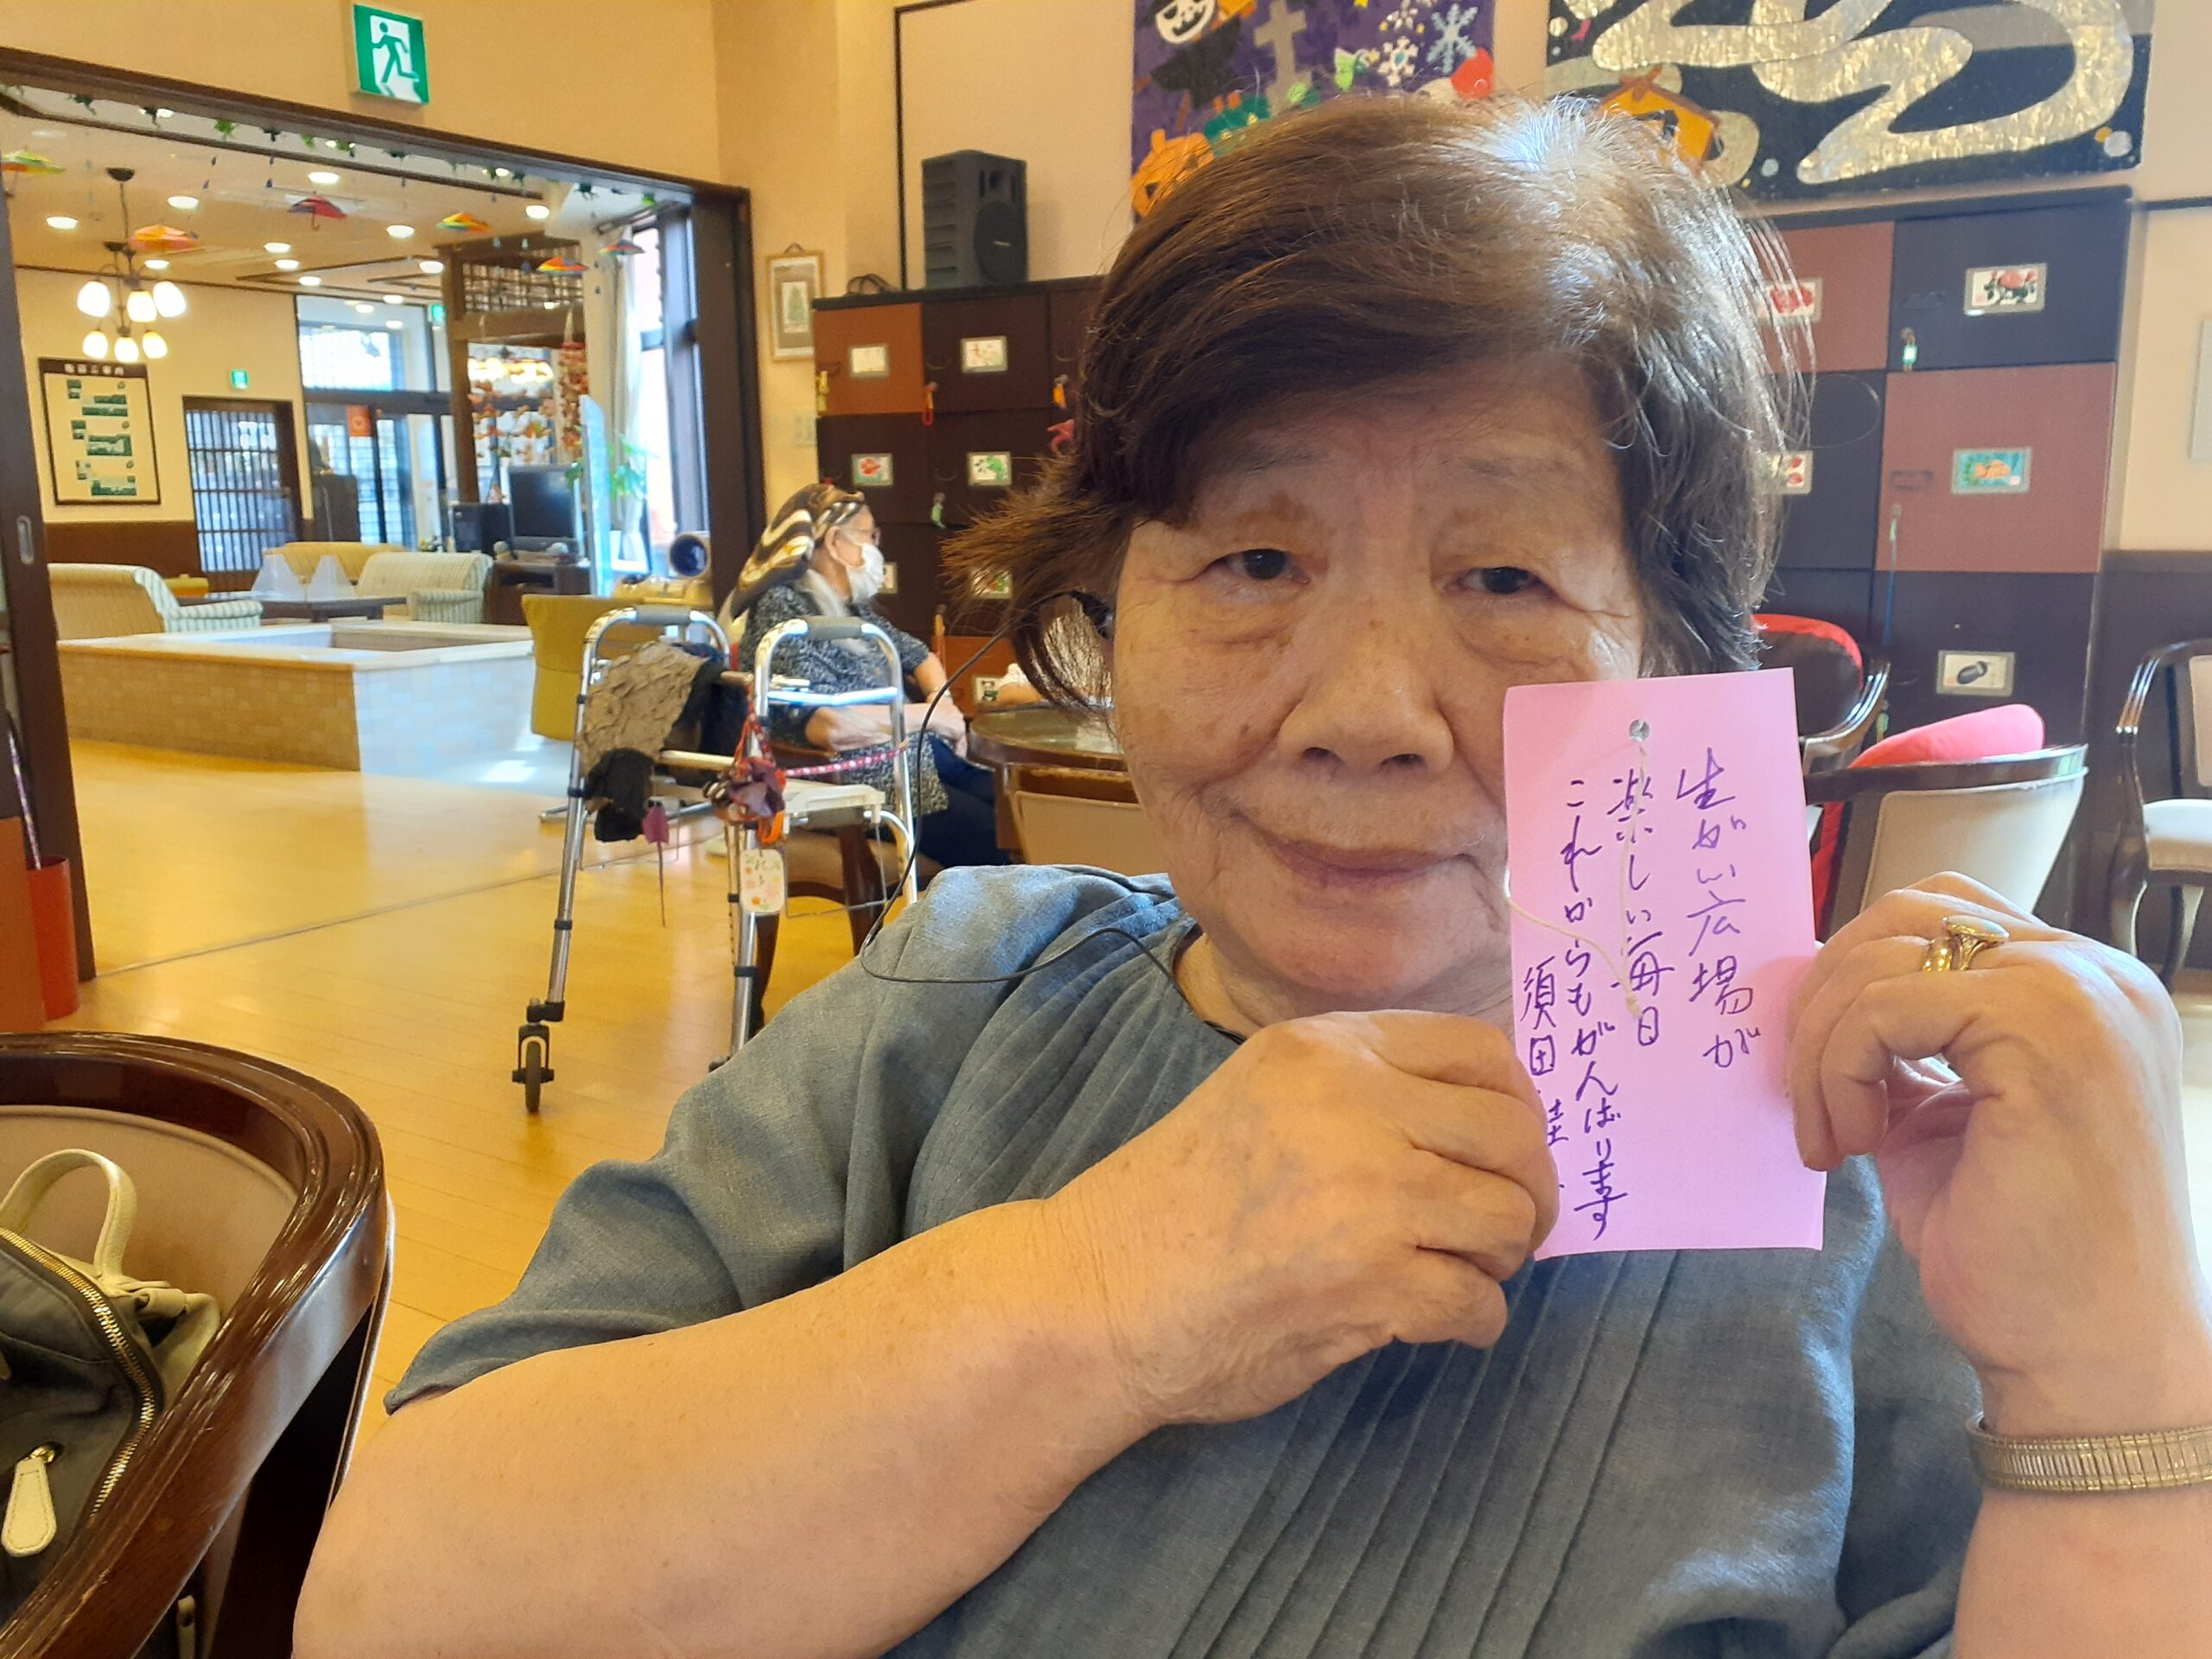 生がい広場が
楽しい毎日
これからもがんばります
須田